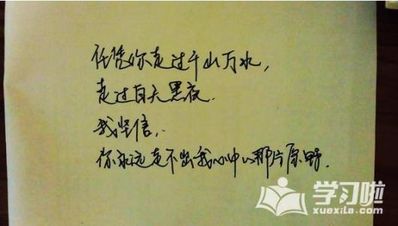 任凭你走过千山万水,
走过白天黑夜.
我坚信,
你永远走不出我心中那片原野.
学习啦
xuexila.com